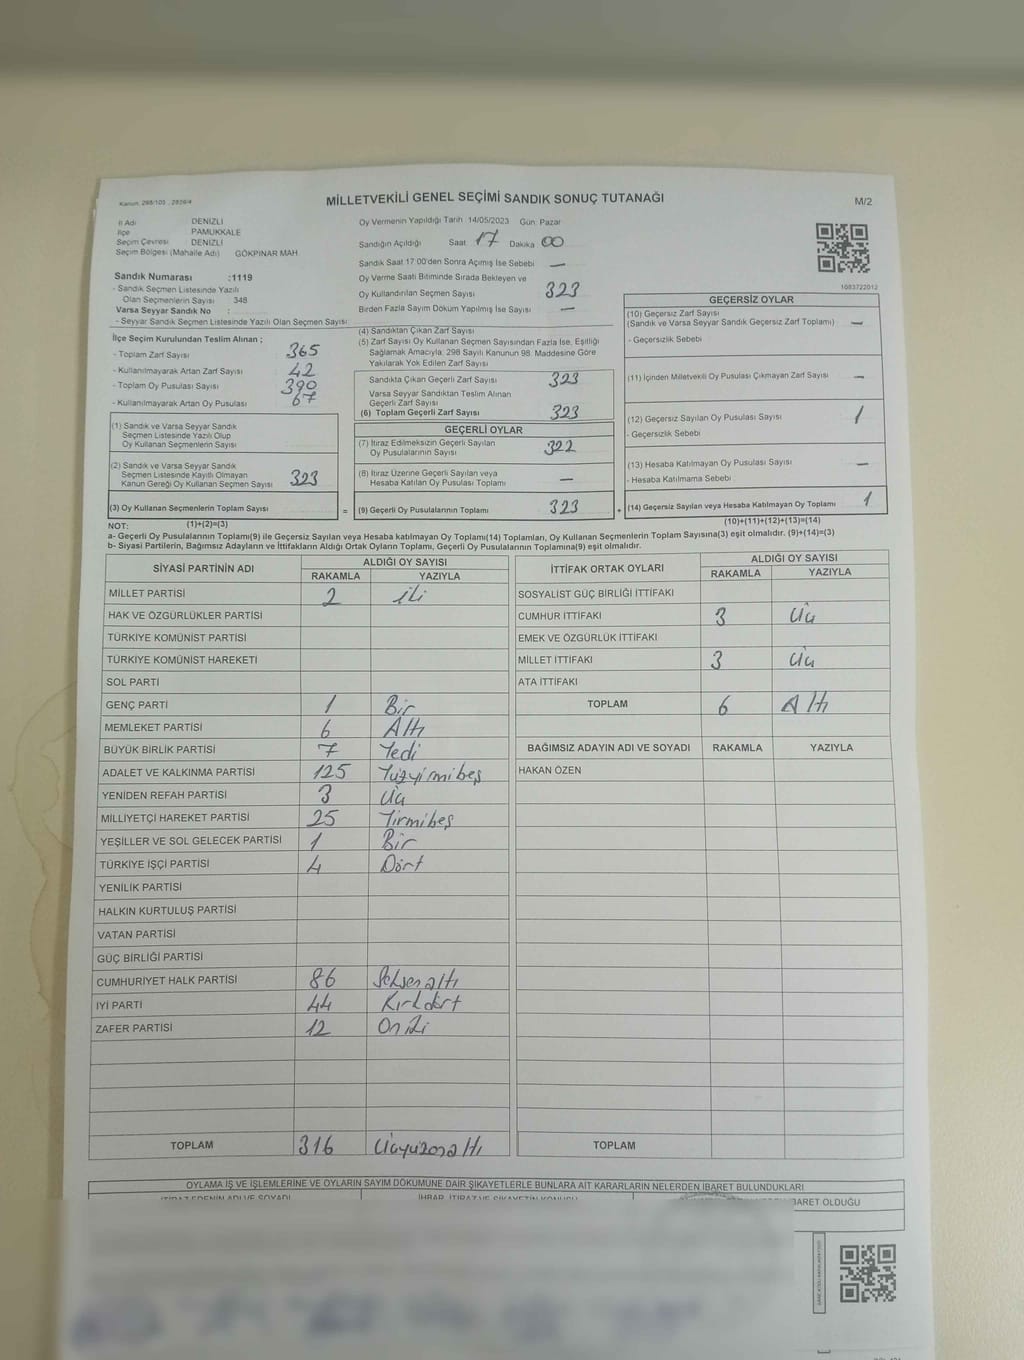 Kanun: 298/105 , 2839/4
MİLLETVEKİLİ GENEL SEÇİMİ SANDIK SONUÇ TUTANAĞI
M/2
İl Adı DENİZLİ
İlçe PAMUKKALE
Seçim Çevresi DENİZLİ
Seçim Bölgesi (Mahalle Adı) GÖKPINAR MAH
Sandık Numarası :1119
- Sandık Seçmen Listesinde Yazılı
Olan Seçmenlerin Sayısı : 348
Varsa Seyyar Sandık No :
- Seyyar Sandık Seçmen Listesinde Yazılı Olan Seçmen Sayısı:
Oy Vermenin Yapıldığı Tarih 14/05/2023 Gün: Pazar
Sandığın Açıldığı Saat 17 Dakika 00
Sandık Saat 17:00'den Sonra Açılmış İse Sebebi —
Oy Verme Saati Bitiminde Sırada Bekleyen ve
Oy Kullandırılan Seçmen Sayısı 323
Birden Fazla Sayım Döküm Yapılmış İse Sayısı —
1083722012
İlçe Seçim Kurulundan Teslim Alınan ;
- Toplam Zarf Sayısı 365
- Kullanılmayarak Artan Zarf Sayısı 42
- Toplam Oy Pusulası Sayısı 390
- Kullanılmayarak Artan Oy Pusulası 67
(1) Sandık ve Varsa Seyyar Sandık
Seçmen Listesinde Yazılı Olup
Oy Kullanan Seçmenlerin Sayısı
(2) Sandık ve Varsa Seyyar Sandık
Seçmen Listesinde Kayıtlı Olmayan
Kanun Gereği Oy Kullanan Seçmen Sayısı 323
(3) Oy Kullanan Seçmenlerin Toplam Sayısı =
(4) Sandıktan Çıkan Zarf Sayısı
(5) Zarf Sayısı Oy Kullanan Seçmen Sayısından Fazla İse, Eşitliği
Sağlamak Amacıyla; 298 Sayılı Kanunun 98. Maddesine Göre
Yakılarak Yok Edilen Zarf Sayısı
Sandıkta Çıkan Geçerli Zarf Sayısı 323
Varsa Seyyar Sandıktan Teslim Alınan
Geçerli Zarf Sayısı
(6) Toplam Geçerli Zarf Sayısı 323
GEÇERLİ OYLAR
(7) İtiraz Edilmeksizin Geçerli Sayılan
Oy Pusulalarının Sayısı 322
(8) İtiraz Üzerine Geçerli Sayılan veya
Hesaba Katılan Oy Pusulası Toplamı —
(9) Geçerli Oy Pusulalarının Toplamı 323 +
GEÇERSİZ OYLAR
(10) Geçersiz Zarf Sayısı
(Sandık ve Varsa Seyyar Sandık Geçersiz Zarf Toplamı) —
- Geçersizlik Sebebi
(11) İçinden Milletvekili Oy Pusulası Çıkmayan Zarf Sayısı —
(12) Geçersiz Sayılan Oy Pusulası Sayısı 1
- Geçersizlik Sebebi
(13) Hesaba Katılmayan Oy Pusulası Sayısı —
- Hesaba Katılmama Sebebi
(14) Geçersiz Sayılan veya Hesaba Katılmayan Oy Toplamı 1
NOT: (1)+(2)=(3) (10)+(11)+(12)+(13)=(14)
a- Geçerli Oy Pusulalarının Toplamı(9) ile Geçersiz Sayılan veya Hesaba katılmayan Oy Toplamı(14) Toplamları, Oy Kullanan Seçmenlerin Toplam Sayısına(3) eşit olmalıdır. (9)+(14)=(3)
b- Siyasi Partilerin, Bağımsız Adayların ve İttifakların Aldığı Ortak Oyların Toplamı, Geçerli Oy Pusulalarının Toplamına(9) eşit olmalıdır.
SİYASİ PARTİNİN ADI ALDIĞI OY SAYISI
RAKAMLA YAZIYLA
MİLLET PARTİSİ 2 iki
HAK VE ÖZGÜRLÜKLER PARTİSİ
TÜRKİYE KOMÜNİST PARTİSİ
TÜRKİYE KOMÜNİST HAREKETİ
SOL PARTİ
GENÇ PARTİ 1 Bir
MEMLEKET PARTİSİ 6 Altı
BÜYÜK BİRLİK PARTİSİ 7 Yedi
ADALET VE KALKINMA PARTİSİ 125 Yüzyirmibeş
YENİDEN REFAH PARTİSİ 3 Üç
MİLLİYETÇİ HAREKET PARTİSİ 25 Yirmibeş
YEŞİLLER VE SOL GELECEK PARTİSİ 1 Bir
TÜRKİYE İŞÇİ PARTİSİ 4 Dört
YENİLİK PARTİSİ
HALKIN KURTULUŞ PARTİSİ
VATAN PARTİSİ
GÜÇ BİRLİĞİ PARTİSİ
CUMHURİYET HALK PARTİSİ 86 Seksenaltı
İYİ PARTİ 44 Kırkdört
ZAFER PARTİSİ 12 Oniki
TOPLAM 316 Üçyüzonaltı
İTTİFAK ORTAK OYLARI ALDIĞI OY SAYISI
RAKAMLA YAZIYLA
SOSYALİST GÜÇ BİRLİĞİ İTTİFAKI
CUMHUR İTTİFAKI 3 Üç
EMEK VE ÖZGÜRLÜK İTTİFAKI
MİLLET İTTİFAKI 3 Üç
ATA İTTİFAKI
TOPLAM 6 Altı
BAĞIMSIZ ADAYIN ADI VE SOYADI RAKAMLA YAZIYLA
HAKAN ÖZEN
TOPLAM
OYLAMA İŞ VE İŞLEMLERİNE VE OYLARIN SAYIM DÖKÜMÜNE DAİR ŞİKAYETLERLE BUNLARA AİT KARARLARIN NELERDEN İBARET BULUNDUKLARI
İTİRAZ EDENİN ADI VE SOYADI İHBAR, İTİRAZ VE ŞİKAYETİN KONUSU İBARET OLDUĞU